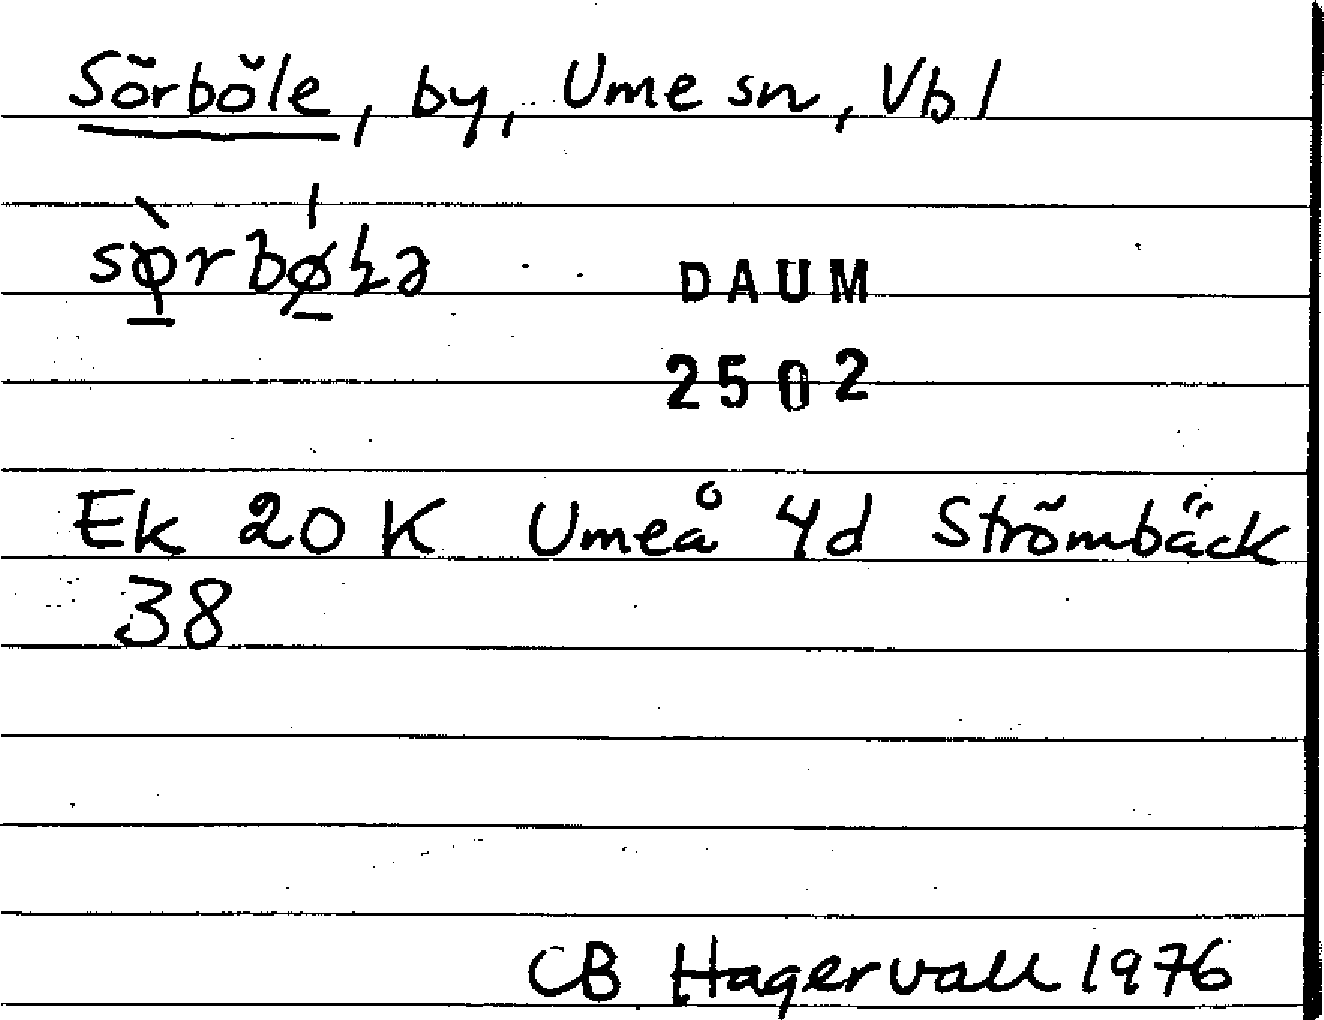 Sörböle, by, Ume sn, Vbl
DAUM
2502
Ek 20 K Umeå 4d Strömbäck
38
CB Hagervall 1976